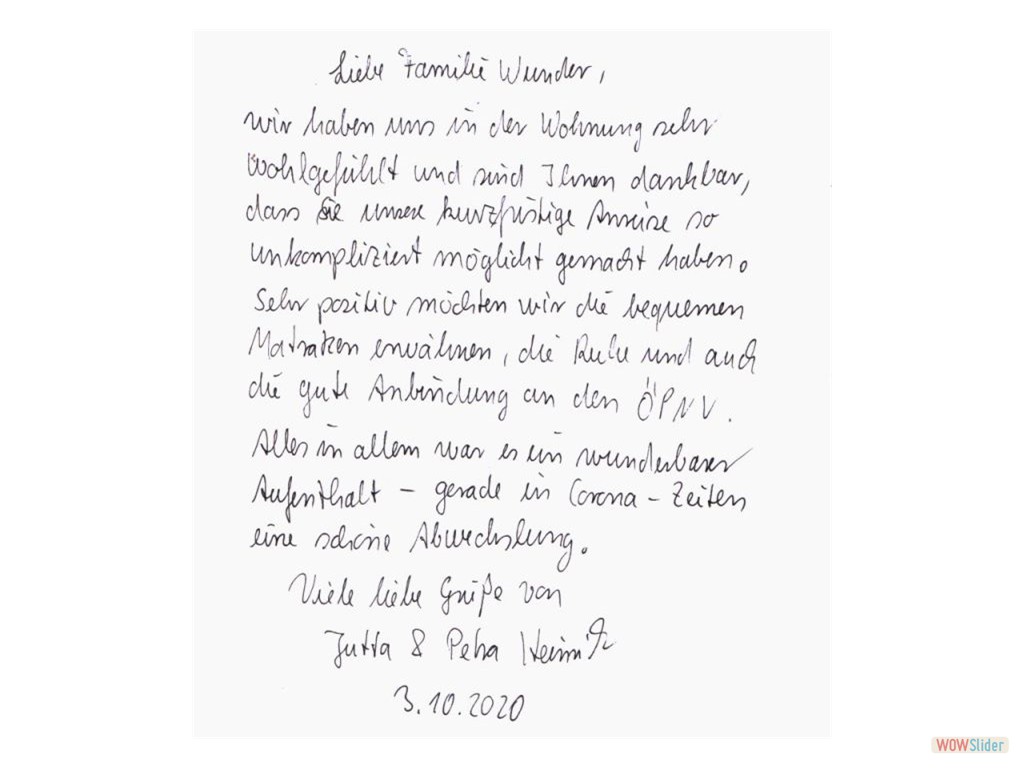 Liebe Familie Wunder,
wir haben uns in der Wohnung sehr
wohlgefühlt und sind Ihnen dankbar,
dass Sie unsere kurzfristige Anreise so
unkompliziert möglicht gemacht haben.
Sehr positiv möchten wir die bequemen
Matratzen erwähnen, die Ruhe und auch
die gute Anbindung an den ÖPNV.
Alles in allem war es ein wunderbarer
Aufenthalt – gerade in Corona-Zeiten
eine schöne Abwechslung.
Viele liebe Grüße von
Jutta & Petra
3.10.2020
WOWSlider